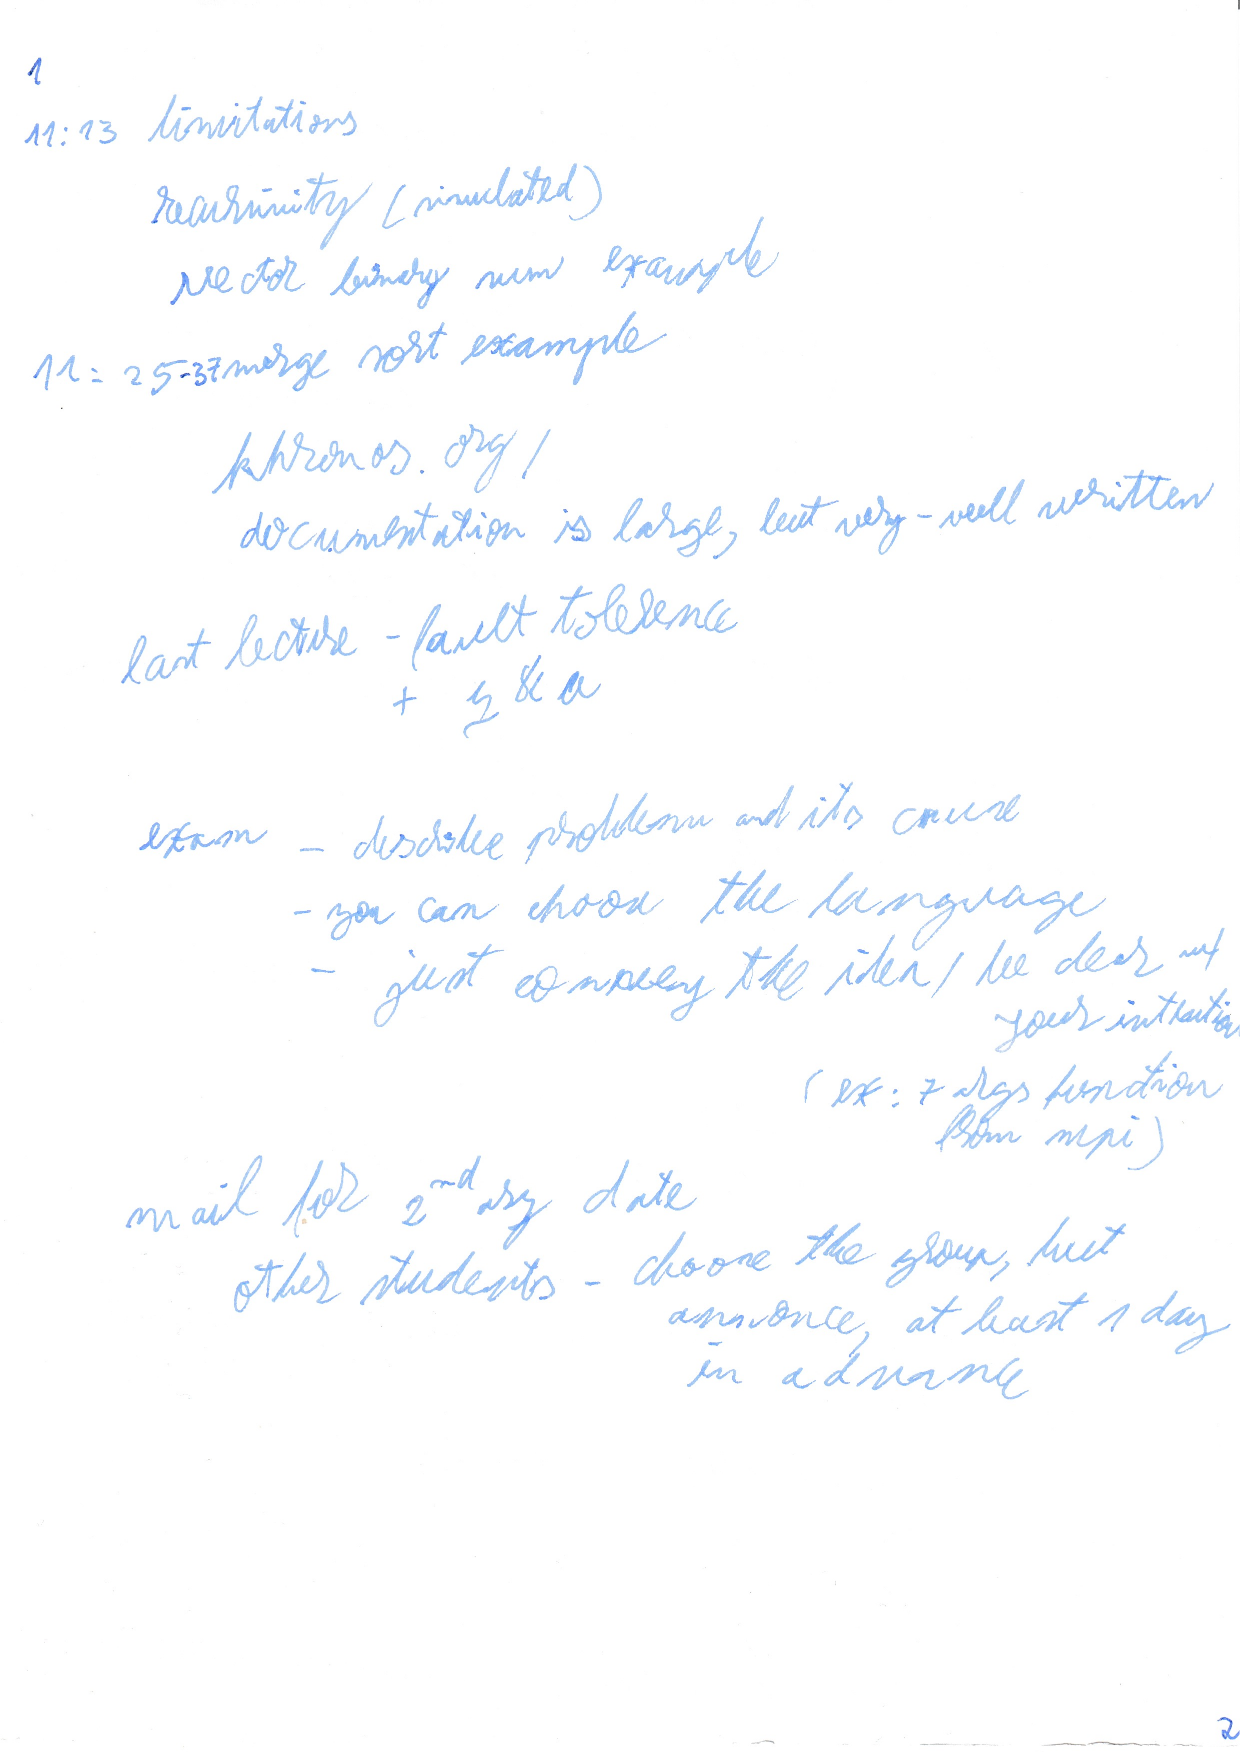 1
11:13 limitations
recursivity (simulated)
vector binary sum example
11:25-37 merge sort example
khronos.org/
documentation is large, but very-well written
last lecture - fault tolerence
+ q & a
exam - describe problem and its cause
- you can choose the language
- just convey the idea / be clear w/
your intention
(ex: 7 args function
from mpi)
mail for 2nd date
other students - choose the group, but
announce, at least 1 day
in advance
2